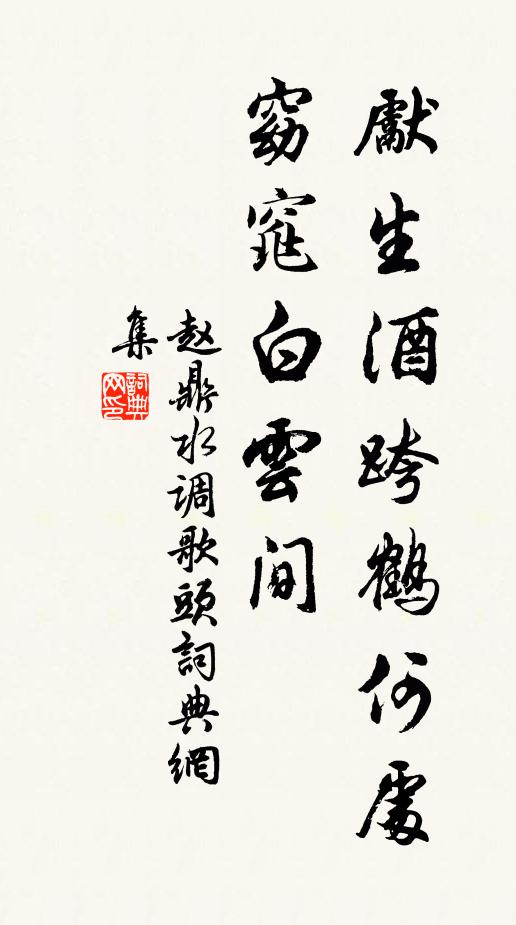 獻生酒跨鶴何處
窈窕白雲間
赵鼎水调歌頭詞典網
集
詞典
网印